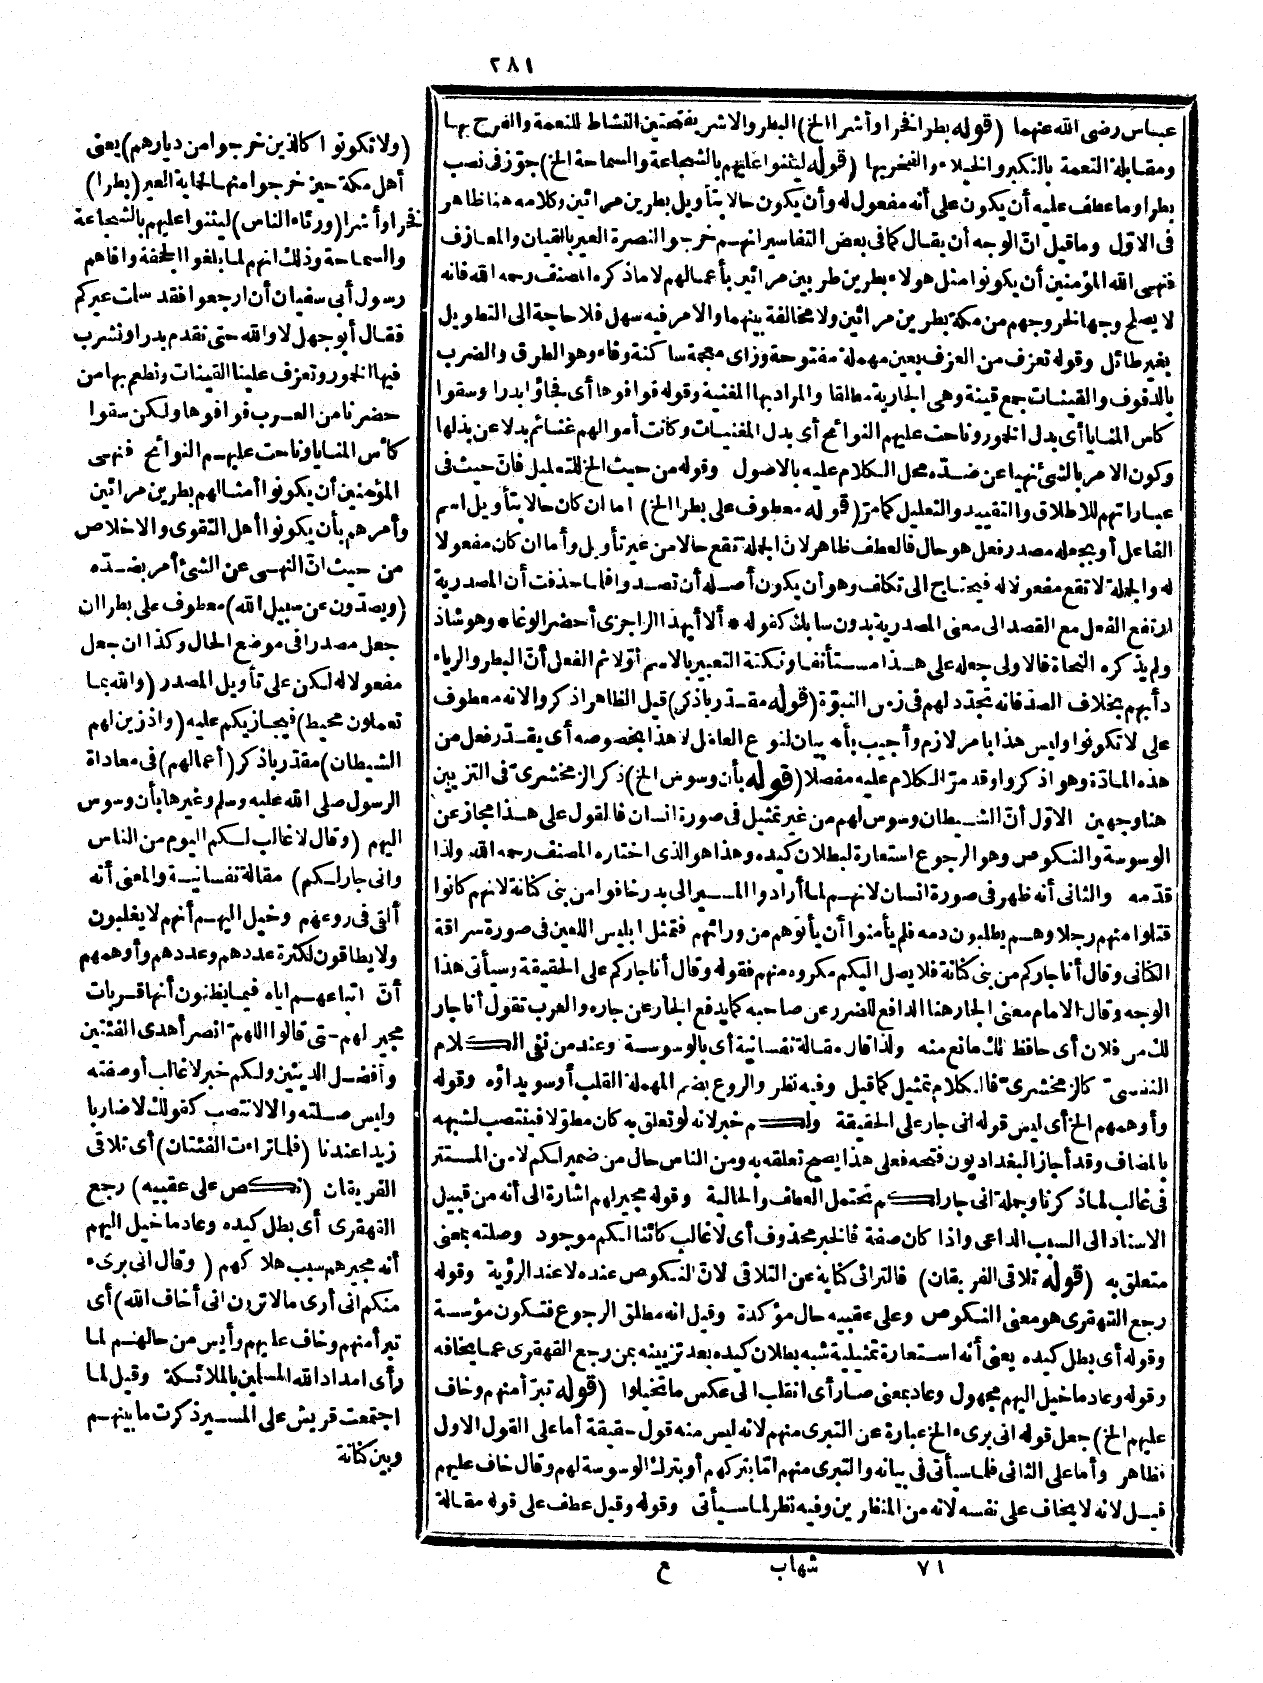 ٢٨١
عباس رضى الله عنهما (قوله بطرا فخرا وأشرا الخ) البطر والاشر بفتحتين النشاط للنعمة والفرح بها
ومقابلة النعمة بالتكبر والخيلاء والفخر بها (قوله ليثنوا عليهم بالشجاعة والسماحة الخ) جوّز فى نصب
بطرا وما عطف عليه أن يكون على أنه مفعول له وأن يكون حالا بتأويل بطرين مرائين وكلامه هنا ظاهر
فى الاوّل وما قيل انّ الوجه أن يقال كما فى بعض التفاسير انهم خرجوا لنصرة العير بالقيان والمعازف
فنهى الله المؤمنين أن يكونوا مثل هولاء بطرين طربين مرائين بأعمالهم لا ما ذكره المصنف رحمه الله فانه
لا يصلح وجها لخروجهم من مكة بطرين مرائين ولا مخالفة بينهما والامر فيه سهل فلا حاجة الى التطويل
بغير طائل وقوله تعزف من العزف بعين مهملة مفتوحة وزاى معجمة ساكنة وفاء وهو الطرق والضرب
بالدفوف والقينات جمع قينة وهى الجارية مطلقا والمراد بها المغنية وقوله فوافوها أى فجاؤا بدرا وسقوا
كاس المنايا أى بدل الخمور وناحت عليهم النوائح أى بدل المغنيات وكانت أموالهم غنائم بدلا عن بذلها
وكون الامر بالشئ نهيا عن ضدّه محل الكلام عليه بالاصول وقوله من حيث الخ للتعليل فانّ حيث فى
عباراتهم للاطلاق والتقييد والتعليل كما مرّ (قوله معطوف على بطرا الخ) اما ان كان حالا بتأويل اسم
الفاعل أو بجعله مصدر فعل هو حال فالعطف ظاهر لانّ الجملة تقع حالا من غير تأويل وأما ان كان مفعولا
له والجملة لا تقع مفعولا له فيحتاج الى تكلف وهو أن يكون أصله أن تصدوا فلما حذفت أن المصدرية
ارتفع الفعل مع القصد الى معنى المصدرية بدون سابك كقوله * ألا أيهذا الزاجرى أحضر الوغا * وهو شاذ
ولم يذكره النحاة فالاولى جعله على هذا مستأنفا ونكتة التعبير بالاسم أوّلا ثم الفعل أنّ البطر والرياء
دأبهم بخلاف الصدّ فانه تجدّد لهم فى زمن النبوّة (قوله مقدّر باذكر) قيل الظاهر اذكروا لانه معطوف
على لا تكونوا وليس هذا بأمر لازم وأجيب بأنه بيان لنوع العامل لا هذا بخصوصه أى يقدّر فعل من
هذه المادّة وهو اذكروا وقد مرّ الكلام عليه مفصلا (قوله بأن وسوس الخ) ذكر الزمخشرىّ فى التزيين
هنا وجهين الاوّل أنّ الشيطان وسوس لهم من غير تمثيل فى صورة انسان فالقول على هذا مجاز عن
الوسوسة والنكوص وهو الرجوع استعارة لبطلان كيده وهذا هو الذى اختاره المصنف رحمه الله ولذا
قدّمه والثانى أنه ظهر فى صورة انسان لانهم لما أرادوا المسير الى بدر خافوا من بنى كنانة لانهم كانوا
قتلوا منهم رجلا وهم يطلبون دمه فلم يأمنوا أن يأتوهم من ورائهم فتمثل ابليس اللعين فى صورة سراقة
الكنانى وقال أنا جاركم من بنى كنانة فلا يصل اليكم مكروه منهم فقوله وقال أنا جاركم على الحقيقة وسيأتى هذا
الوجه وقال الامام معنى الجار هنا الدافع للضرر عن صاحبه كما يدفع الجار عن جاره والعرب تقول أنا جار
لك من فلان أى حافظ لك مانع منه ولذا قال مقالة نفسانية أى بالوسوسة وعند من نفى الكلام
النفسىّ كالزمخشرىّ فالكلام تمثيل كما قيل وفيه نظر والروع بضم المهملة القلب أو سويداؤه وقوله
وأوهمهم الخ أى ليس قوله انى جار على الحقيقة ولكم خبر لانه لو تعلق به كان مطوّلا فينتصب لشبهه
بالمضاف وقد أجاز البغداديون فتحه فعلى هذا يصح تعلقه به ومن الناس حال من ضمير لكم لا من المستتر
فى غالب لما ذكرنا وجملة انى جار لكم تحتمل العطف والحالية وقوله مجير لهم اشارة الى أنه من قبيل
الاسناد الى السبب الداعى واذا كان صفة فالخبر محذوف أى لا غالب كائنا لكم موجود وصلته بمعنى
متعلق به (قوله تلاقى الفريقان) فالترائى كناية عن التلاقى لانّ النكوص عنده لا عند الرؤية وقوله
رجع القهقرى هو معنى النكوص وعلى عقبيه حال مؤكدة وقيل انه مطلق الرجوع فتكون مؤسسة
وقوله أى بطل كيده يعنى أنه استعارة تمثيلية شبه بطلان كيده بعد تزيينه بمن رجع القهقرى عما يخافه
وقوله وعاد ما خيل اليهم مجهول وعاد بمعنى صار أى انقلب الى عكس ما تخيلوا (قوله تبرّأ منهم وخاف
عليهم الخ) جعل قوله انى برىء الخ عبارة عن التبرى منهم لانه ليس منه قول حقيقة أما على القول الاول
فظاهر وأما على الثانى فلما سيأتى فى بيانه والتبرى منهم امّا بتركهم أو بترك الوسوسة لهم وقال خاف عليهم
قيل لانه لا يخاف على نفسه لانه من المنظرين وفيه نظر لما سيأتى وقوله وقيل عطف على قوله مقالة
(ولا تكونوا كالذين خرجوا من ديارهم) يعنى
أهل مكة حين خرجوا منها لحماية العير (بطرا)
فخرا وأشرا (ورئاء الناس) ليثنوا عليهم بالشجاعة
والسماحة وذلك انهم لما بلغوا الجحفة وافاهم
رسول أبى سفيان أن ارجعوا فقد سلمت عيركم
فقال أبو جهل لا والله حتى نقدم بدرا ونشرب
فيها الخمور وتعزف علينا القينات ونطعم بها من
حضرنا من العرب فوافوها ولكن سقوا
كأس المنايا وناحت عليهم النوائح فنهى
المؤمنين أن يكونوا أمثالهم بطرين مرائين
وأمرهم بأن يكونوا أهل التقوى والاخلاص
من حيث انّ النهى عن الشئ أمر بضدّه
(ويصدّون عن سبيل الله) معطوف على بطرا ان
جعل مصدرا فى موضع الحال وكذا ان جعل
مفعولا له لكن على تأويل المصدر (والله بما
تعملون محيط) فيجازيكم عليه (واذ زين لهم
الشيطان) مقدّر باذكر (أعمالهم) فى معاداة
الرسول صلى الله عليه وسلم وغيرها بأن وسوس
اليهم (وقال لا غالب لكم اليوم من الناس
وانى جار لكم) مقالة نفسانية والمعنى أنه
ألقى فى روعهم وخيل اليهم أنهم لا يغلبون
ولا يطاقون لكثرة عددهم وعددهم وأوهمهم
أنّ اتباعهم اياه فيما يظنون أنها قربات
مجير لهم حتى قالوا اللهمّ انصر أهدى الفئتين
وأفضل الدينين ولكم خبر لا غالب أو صفته
وليس صلته والا لانتصب كقولك لا ضاربا
زيدا عندنا (فلما تراءت الفئتان) أى تلاقى
الفريقان (نكص على عقبيه) رجع
القهقرى أى بطل كيده وعاد ما خيل اليهم
أنه مجيرهم سبب هلاكهم (وقال انى برىء
منكم انى أرى ما لا ترون انى أخاف الله) أى
تبرأ منهم وخاف عليهم وأيس من حالهم لما
رأى امداد الله المسلمين بالملائكة وقيل لما
اجتمعت قريش على المسير ذكرت ما بينهم
وبين كنانة
٧١ شهاب ع